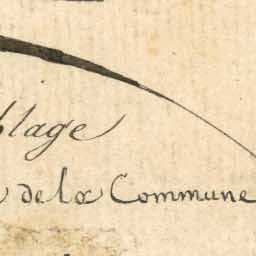 blage
de la Commune